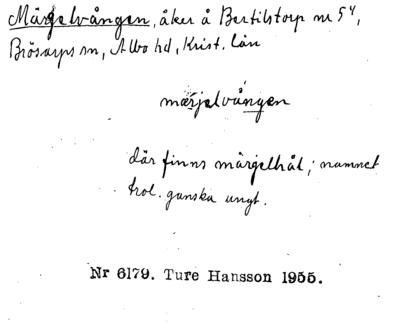 Märgelvången, åker å Bertilstorp nr 5⁴,
Brösarps sn, Albo hd, Krist. län
märjelvången
där finns märgelhål; namnet
trol. ganska ungt.
Nr 6179. Ture Hansson 1955.